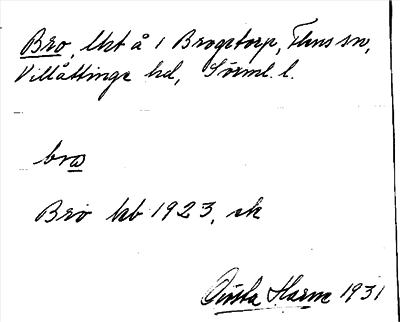 Bro, lht å 1 Brogetorp, Flens sn,
Villåttinge hd, Sörml. l.
bro
Bro hb 1923, sk
Gösta Harm 1931